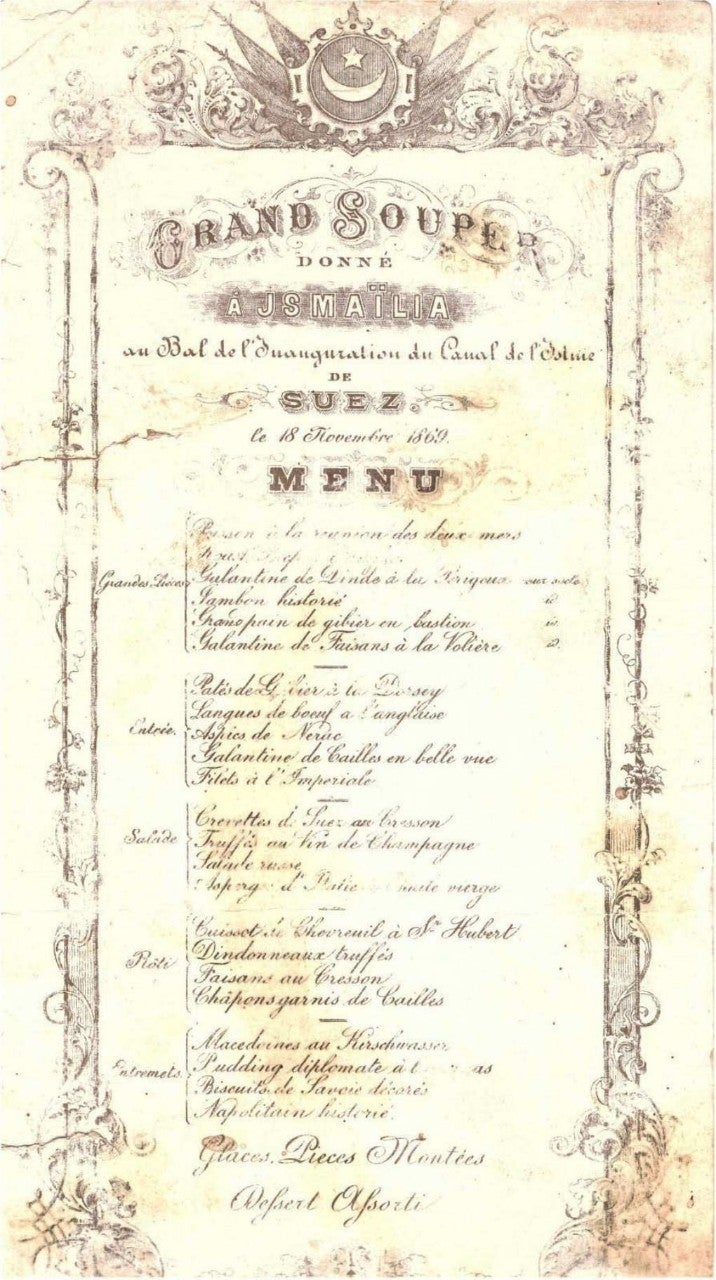 GRAND SOUPER
DONNÉ
À JSMAÏLIA
au Bal de l'Inauguration du Canal de l'Istme
DE
SUEZ.
le 18 Novembre 1869.
MENU
à la reunion des deux mers
Grandes Pièces
Galantine de Dinde à la Périgoux sur socle
Jambon historié id
Grand pain de gibier en bastion id.
Galantine de Faisans à la Volière id.
Patés de Gibier à la Dorsey
Langues de boeuf a l'anglaise
Entrée.
Aspics de Nerac
Galantine de Cailles en belle vue
Filets à l'Imperiale
Crevettes de Suez au Cresson
Salade
Truffes au Vin de Champagne
Salade russe
vierge
Cuissot de Chevreuil à St Hubert
Dindonneaux truffés
Rôti
Faisans au Cresson
Châpons garnis de Cailles
Macedoines au Kirschwasser
Entremets.
Pudding diplomate à
Biscuits de Savoie décorés
Napolitain historié.
Glaces, Pieces Montées
Dessert Assorti